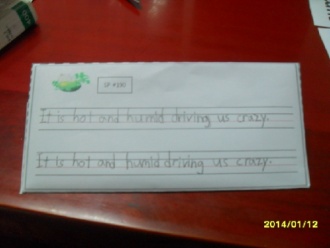 SP #190
It is hot and humid driving us crazy.
It is hot and humid driving us crazy.
2014/01/12